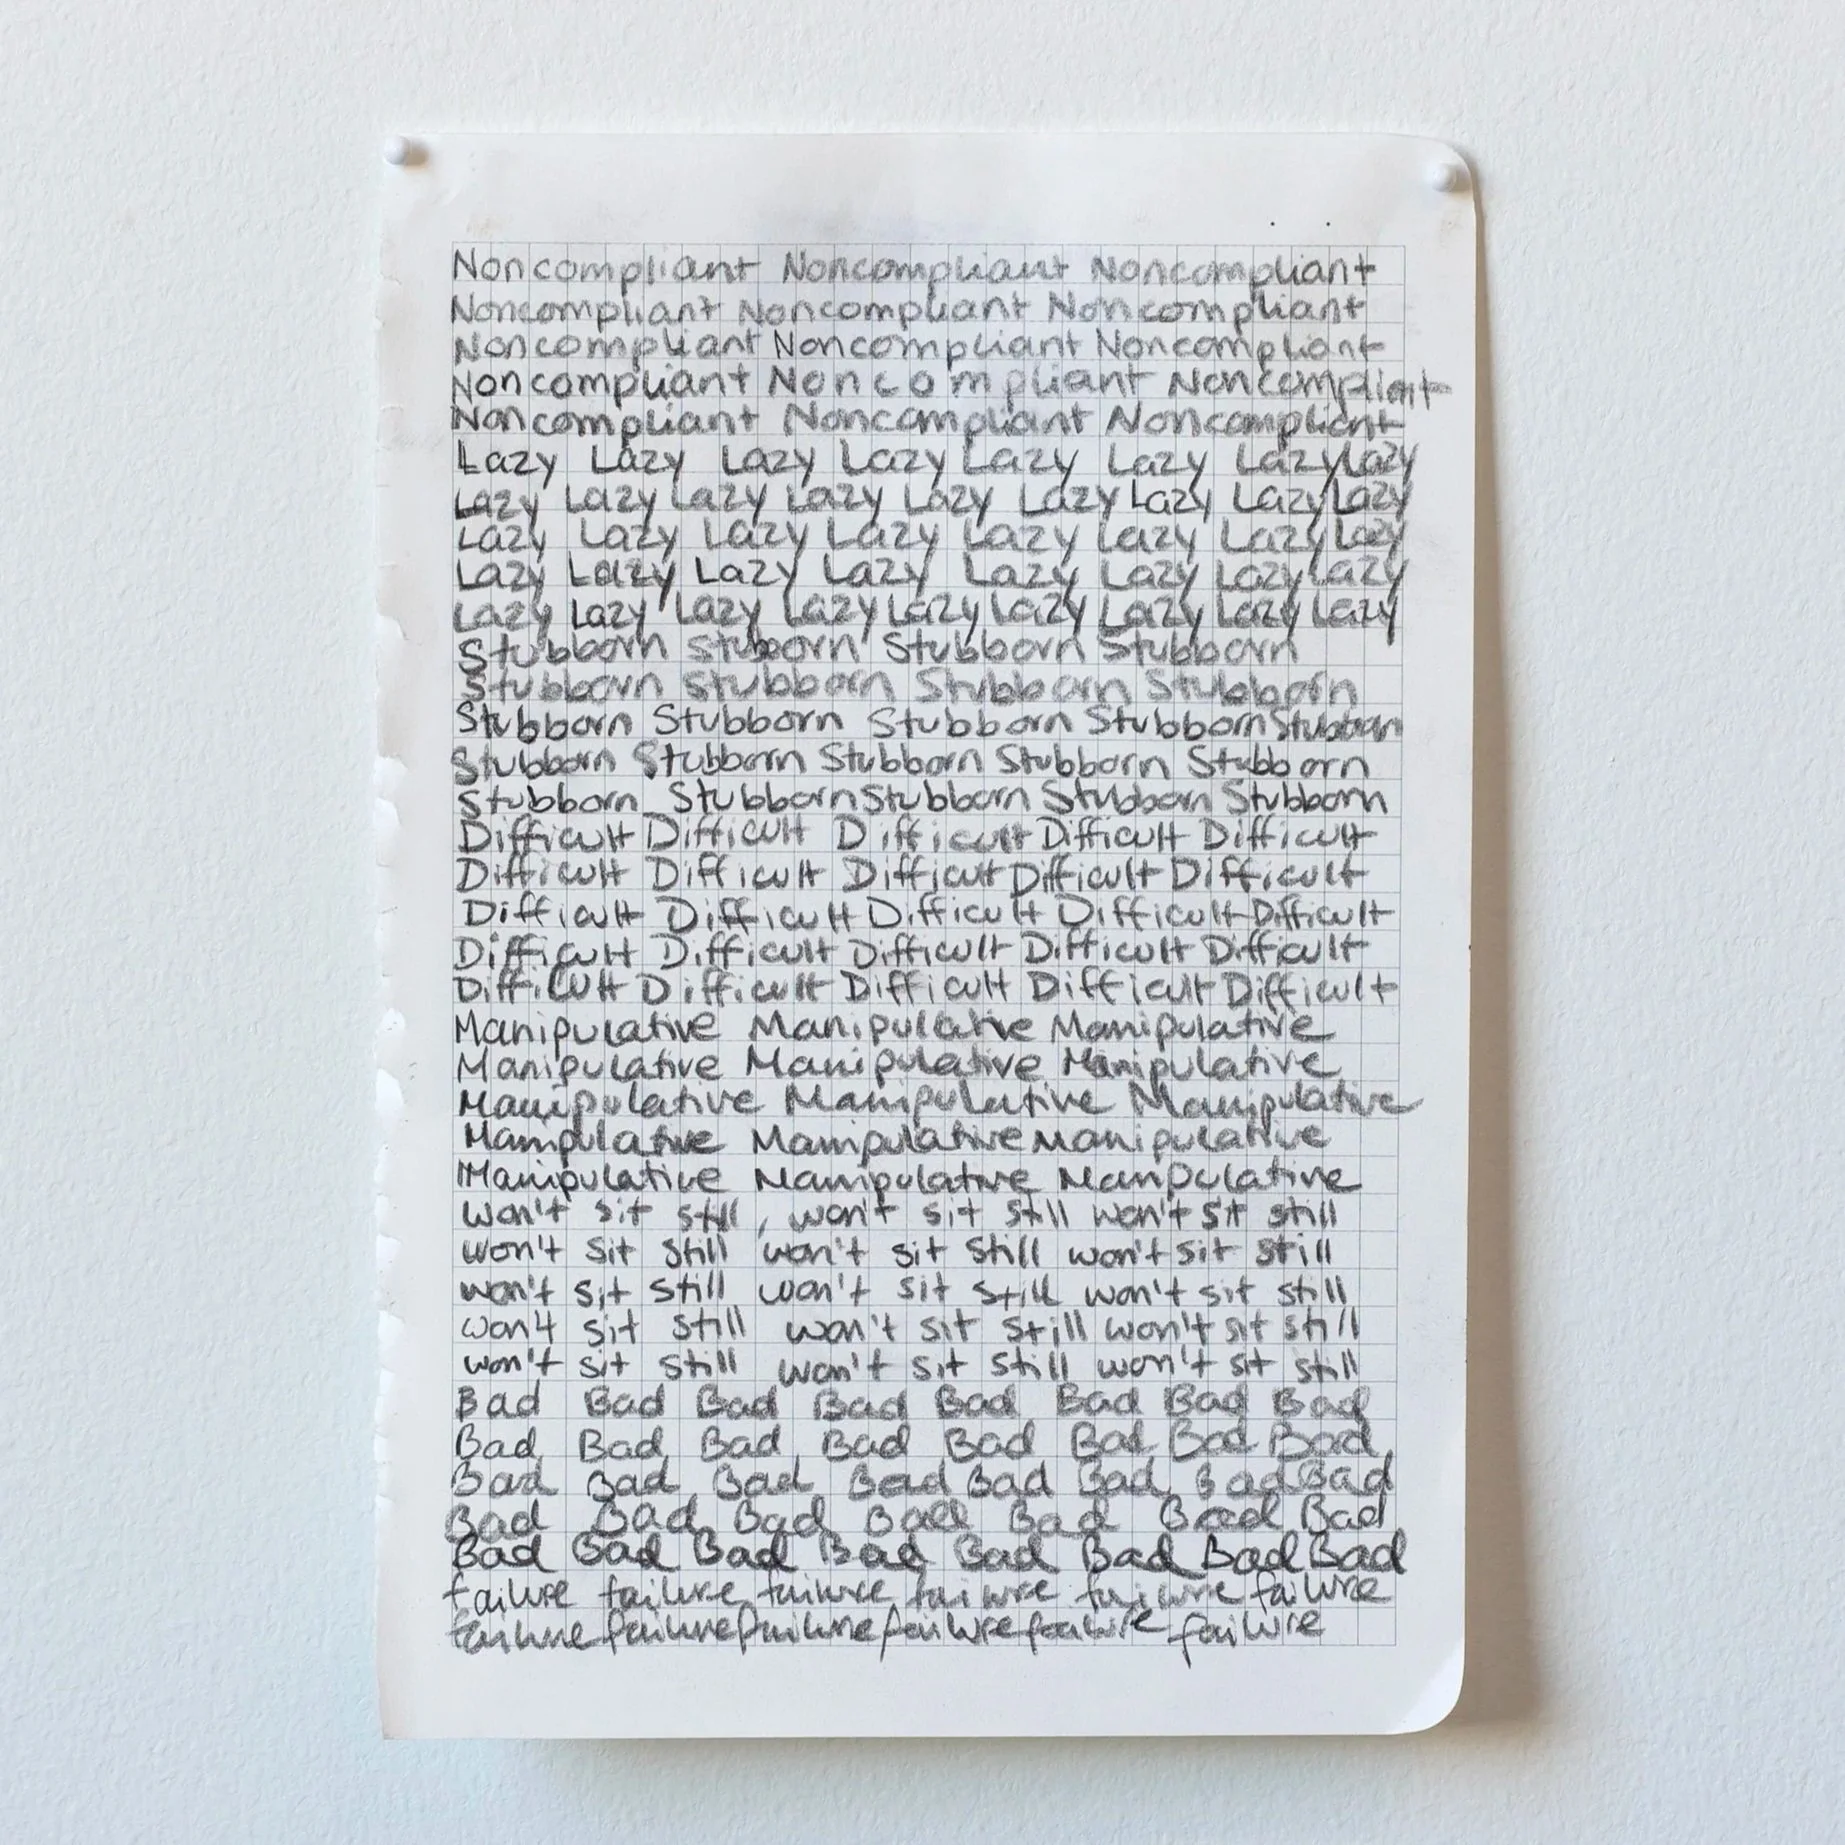 Noncompliant Noncompliant Noncompliant
Noncompliant Noncompliant Noncompliant
Noncompliant Noncompliant Noncompliant
Noncompliant Noncompliant Noncompliant
Noncompliant Noncompliant Noncompliant
Lazy Lazy Lazy Lazy Lazy Lazy Lazy Lazy
Lazy Lazy Lazy Lazy Lazy Lazy Lazy Lazy Lazy
Lazy Lazy Lazy Lazy Lazy Lazy Lazy Lazy
Lazy Lazy Lazy Lazy Lazy Lazy Lazy Lazy
Lazy Lazy Lazy Lazy Lazy Lazy Lazy Lazy Lazy
Stubborn Stubborn Stubborn Stubborn
Stubborn Stubborn Stubborn Stubborn
Stubborn Stubborn Stubborn Stubborn Stubborn
Stubborn Stubborn Stubborn Stubborn Stubborn
Stubborn Stubborn Stubborn Stubborn Stubborn
Difficult Difficult Difficult Difficult Difficult
Difficult Difficult Difficult Difficult Difficult
Difficult Difficult Difficult Difficult Difficult
Difficult Difficult Difficult Difficult Difficult
Difficult Difficult Difficult Difficult Difficult
Manipulative Manipulative Manipulative
Manipulative Manipulative Manipulative
Manipulative Manipulative Manipulative
Manipulative Manipulative Manipulative
Manipulative Manipulative Manipulative
won't sit still, won't sit still won't sit still
won't sit still won't sit still won't sit still
won't sit still won't sit still won't sit still
won't sit still won't sit still won't sit still
won't sit still won't sit still won't sit still
Bad Bad Bad Bad Bad Bad Bad Bad
Bad Bad Bad Bad Bad Bad Bad Bad
Bad Bad Bad Bad Bad Bad Bad Bad
Bad Bad Bad Bad Bad Bad Bad
Bad Bad Bad Bad Bad Bad Bad Bad
failure failure failure failure failure failure
failure failure failure failure failure failure